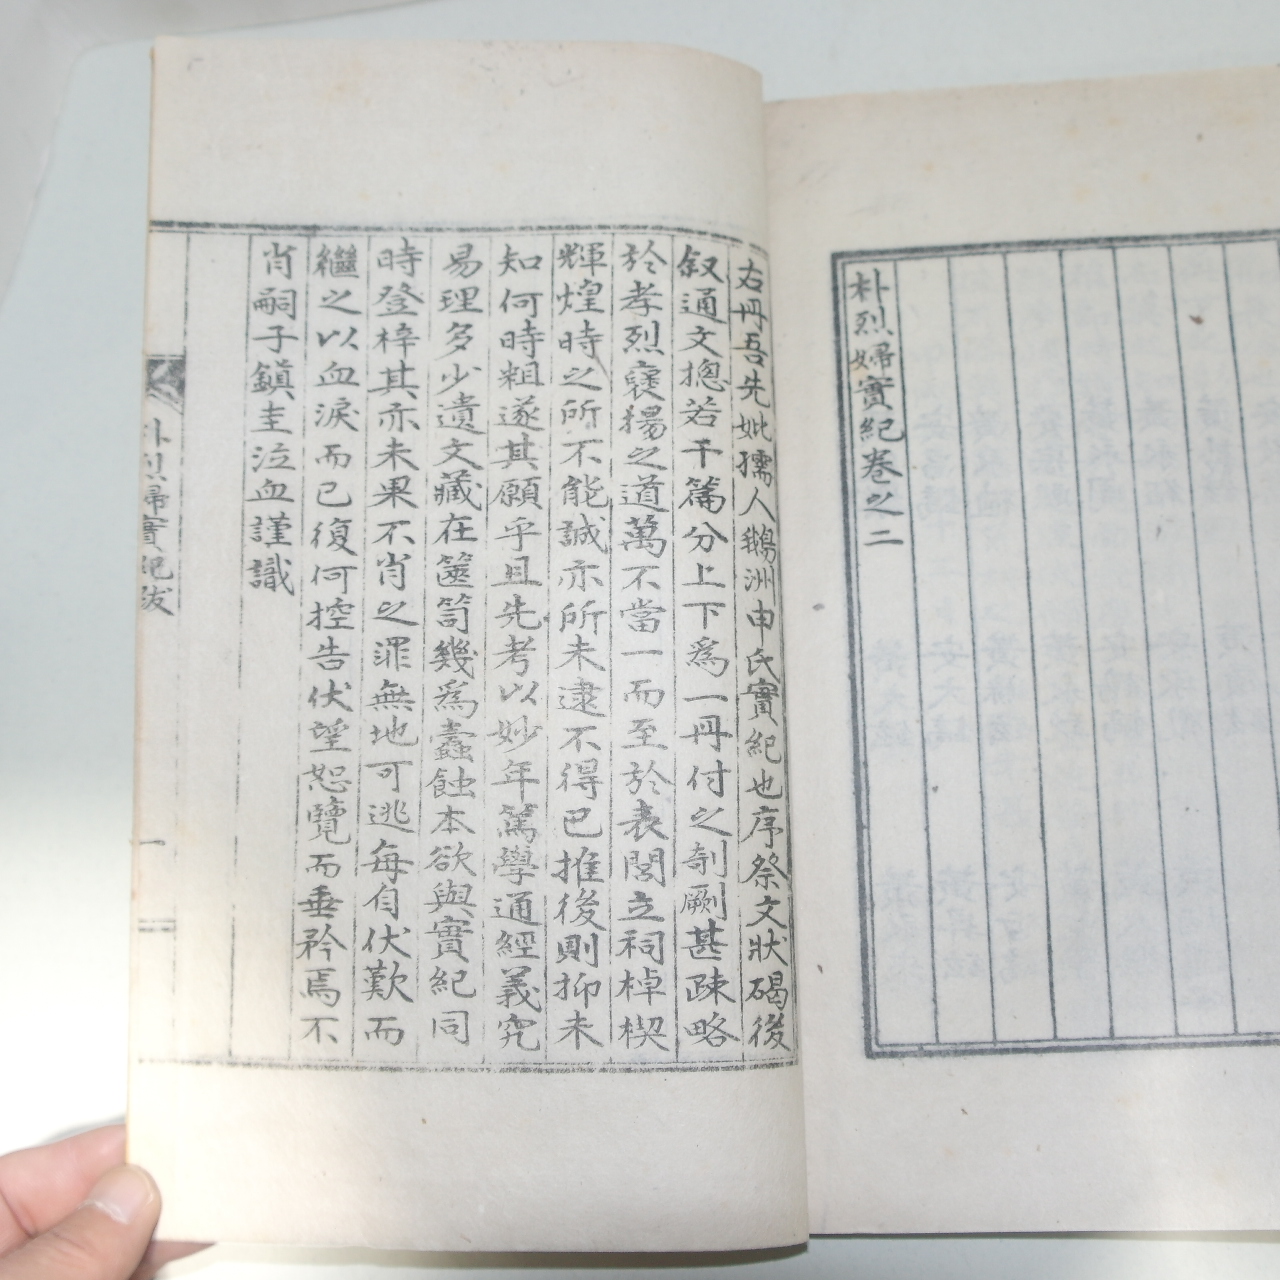 朴烈婦實紀卷之二
右冊吾先妣孺人鵝洲申氏實紀也序祭文狀碣後
叙通文摠若干篇分上下爲一冊付之剞劂甚疎略
於孝烈褒揚之道萬不當一而至於表閭立祠棹楔
輝煌時之所不能誠亦所未逮不得已推後則抑未
知何時粗遂其願乎且先考以妙年篤學通經義究
易理多少遺文藏在篋笥幾爲蠹蝕本欲與實紀同
時登梓其亦未果不肖之罪無地可逃每自伏歎而
繼之以血淚而已復何控告伏望恕覽而垂矜焉不
肖嗣子鎭圭泣血謹識
朴烈婦實紀跋
一